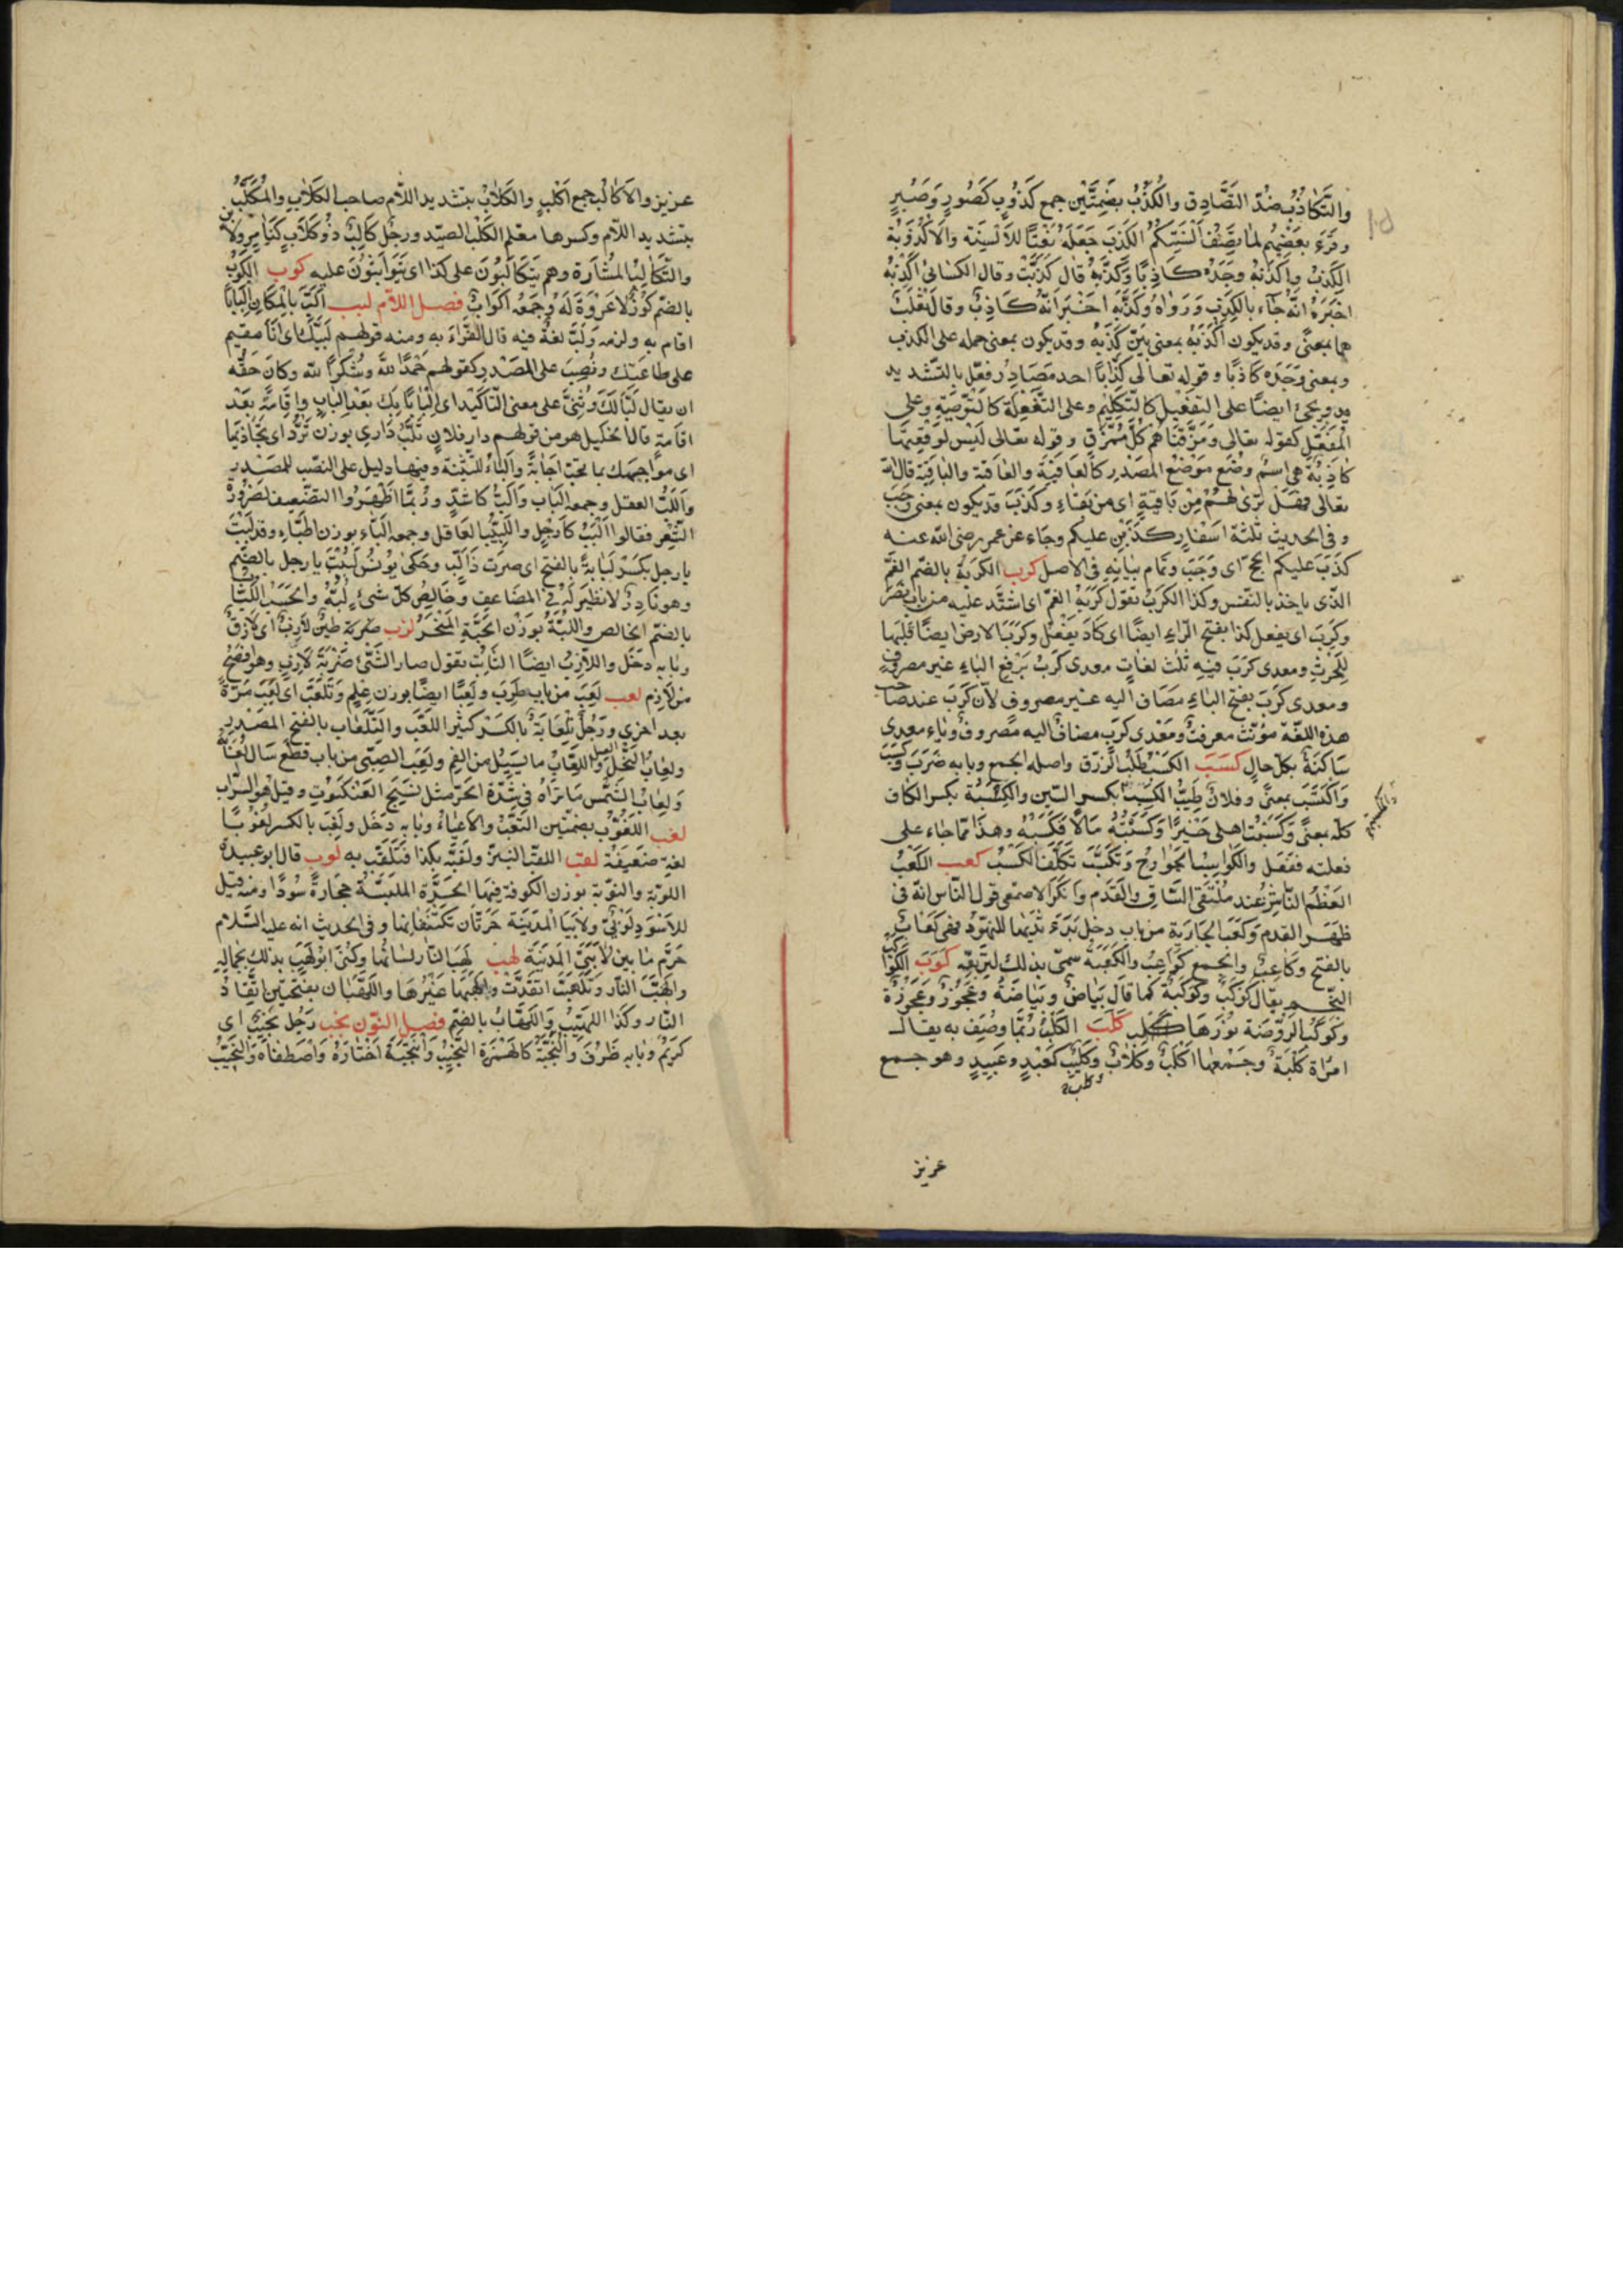 والتَّكَاذُبُ ضدّ التَّصَادِق والكُذُبُ بضَمَّتَيْن جمع كَذُوبٍ كَصَبُورٍ وَصُبُرٍ
وقرَءَ بعضهُم لما تَصِفُ ألْسِنَتُكُمُ الكُذُبُ جَعَلَهُ نَعْتًا للألْسِنَة والأُكْذُوبَة
الكَذِبُ واكْذَبَهُ وجَدَهُ كاذِبًا وَكَذَّبَهُ قال كَذَبْتَ وقال الكسائىُّ اكْذَبَهُ
اخبَرَهُ انَّهُ جَاء بالكَذِبِ وَرَوَاهُ وكَذَّبَهُ اخْبَرَ انّهُ كاذِبٌ وقال ثَعْلَبٌ
هما بمعنًى وقد يكون اكْذَبَهُ بمعنى بَيَّنَ كَذِبَهُ وقد يكون بمعنى حمله على الكذب
وبمعنى وَجَدَهُ كاذِبًا وقوله تعالى كِذَّابًا احد مَصَادِر فعّل بالتّشديد
ويجئ ايضًا على التفعيل كالتّكلِيْم وعلى التَّفْعِلَة كالتّوْصِيَةِ وعلى
المُفَعَّلِ كقوله تعالى وَمَزَّقْنَاهُم كُلَّ مُمَزَّقٍ وقوله تعالى لَيْس لوَقْعَتِهَا
كَاذِبَةٌ هى اسمٌ وُضِع مَوْضِعَ المصْدَرِ كالعَافِيَةِ والعَاقِبَة والباقِيَة قال الله
تعالى فهَل تَرَى لَهُمْ مِنْ بَاقِيَةٍ اى من بَقاءٍ وكَذَبَ قد يكون بمعنى وَجَبَ
وفى الحديث ثلثة اسْفارٍ كَذَبْنَ عليكم وجَاء عن عمر رضى الله عنه
كذَبَ عليكم الحجّ اى وَجَبَ وتمام بيَانِهِ فى الاصل كرب الكُرْبَةُ بالضّم الغمّ
الذّى ياخذ بالنفس وكذا الكَرْبُ تقول كَرَبَهُ الغمّ اى اشتَدّ عليه من باب نصر
وكَرَبَ ان يفعل كذا بفتح الرّاء ايضًا اى كادَ يَفْعَل وكَرَبَ الارض ايضًا قَلَبَها
لِلحَرْثِ ومعدى كرَبَ فيه ثلث لغاتٍ معدى كَربُ بَرفعِ الباءِ غير مصروفٍ
ومعدى كَرَبَ بفتح الباء مضاف اليه غير مصروفٍ لأنّ كَرَبَ عند صاحب
هذه اللغة مؤنّث معرفة ومَعْدى كَرَبٍ مضافٌ اليه مَصروفٌ وياء معدى
سَاكنَةٌ بكلّ حالٍ كسَبَ الكسْبُ طلَبُ الرّزق واصله الجمع وبابه ضَرَبَ وكَسَبَ
وَاكْتَسَبَ بمعنًى وفلانٌ طَيِّبُ الكَسْبِ بكسر السّين والكِسْبَة بكسر الكاف
كلّه بمعنًى وكَسَبْتُ اهلى خَيْرًا وَكَسَبْتُهُ مَالاً فكَسَبَهُ وهذا ممّا جاء على
فعلته ففعَل والكَواسِبُ الجَوَارِحُ وَتَكَسَّبَ تَكَلَّفَ الكَسْبَ كعب الكَعْبُ
العَظْمُ النّاشِزُ عند مُلْتَقَى السّاقِ والقَدَمِ وانكَرَ الاصمعى قول النّاس انّه فى
ظَهْر القدم وكَعَبَ الجَارِيَة من باب دخل بَدَءَ ثَدْيُها للنّهود فهى كَعَابٌ
بالفتح وكاعِبٌ والجمع كَوَاعِبُ والكَعْبَة سمّى بذلك لتربيعه كوكَبَ الكوكب
النّجم يقال كَوْكَبٌ وكَوْكَبَةٌ كما قال بَيَاضٌ وبَيَاضَةٌ وعَجُوزٌ وعَجُوزَةٌ
وكَوْكَبُ الرّوْضَة نَوْرُهَا كلَبَ الكَلْبُ رُبَّمَا وُصِف به يقال
امْرَاة كَلْبَةٌ وجَمْعها اكْلُبٌ وكلابٌ وكَلِيْبٌ كعَبْدٍ وعَبِيدٍ وهو جمع
عزيز
عزيز والاكالُبُ جمع اكْلُبٍ والكَلاّبُ بتشديد اللاّم صاحب الكلابِ والمُكَلِّبُ
بتشديد اللاّم وكسرها معلم الكَلْبِ الصيد ورجُل كَالِبٌ ذُو كلابٍ كتَامِرٍ ولابن
والتّكالُبُ المُشَارَة وهم يَتَكالَبُونَ على كذا اى يَتَواثَبُونَ عليه كوب الكُوبُ
بالضمّ كُوزٌ لا عُرْوَةَ لَهُ وجَمعُه اكْوَابٌ فصل اللاّم لبب الَبَّ بالمكان الْبَابًا
اقام به ولزمه ولَبَّ لغة فيه قال الفَرّاءُ به ومنه قولهم لَبَّيْك اى انَا مقيم
على طاعَتِك ونُصِبَ على المَصْدر كقولهم حَمْدًا للهِ وشُكْرًا لله وكان حقّه
ان يقال لَبًّا لَكَ وَثُنِّىَ على معنى التّاكَيْد اى الْبَابًا بِكَ بَعْد الْباب واقَامَةً بَعْد
اقامةٍ قال الخليل هو من قولهم دار فلان تَلُبُّ دَارى بوزن تَرُدُّ اى تُحَاذيها
اى مواجهك بما تحبّ اجَابَةً والياءُ للتّثنية وفيها دليل على النصب للمصْدر
واللُّبُّ العقل وجمعه الْبَابٌ والُبٌّ كاشُدٍّ ورُبّمَا اظْهَرُوا التضعيف لضرورة
الشِّعر فقالوا الْبُبٌ كارجُلٍ واللَّبيْبُ العَاقل وجمعه الِبّاء بوزن اطِبّاء وقد لَبِبْتَ
يا رجل بكَسْر لَبَابةً بالفتح اى صِرت ذَا لُبٍّ وحَكَى يُونسُ لَبُبْتَ يا رجل بالضّم
وهو نادِرٌ لا نظير لَهُ فى المضاعف وخالِصُ كلّ شئٍ لُبُّهُ والحسَبُ اللُّبَابُ
بالضّم الخالص واللبَّةُ بوزن الحَبَّةِ المنْحَرُ لزب طينٌ لازِبٌ اى لازِقٌ
وبابه دَخَل واللاّزِبُ ايضًا الثابت تقول صار الشّئُ ضَرْبَةَ لازِبٍ وهو افصح
من لازمٍ لعب لَعِبَ من باب طرِبَ ولَعِبًا ايضًا بوزن عِلْمٍ وتَلَعَّبَ اى لَعِبَ مَرّةً
بعد اخرى ورَجُلٌ تِلْعَابَةٌ بالكَسر كثير اللَّعِبِ والتَّلْعَاب بالفتح المصْدر
ولعابُ النَّحْل العسل واللُّعَابُ ما يَسِيلُ من الفمِ ولَعَبَ الصبّى من باب قطعَ سَال لُعَابُهُ
ولعابُ الشّمس مَا تَرَاهُ فى شِدّة الحَرّ مثل نَسِيج العَنكبُوتِ وقيل هو السّراب
لغب اللغُوبُ بضمّتين التعَبُ والاعياءُ وبابه دَخَل ولَغِبَ بالكسر لغُوبًا
لغة ضَعِيفَة لقب اللقبُ النَبْز ولقّبَه بكذا فَتَلَقّبَ به لوب قال ابو عبيدة
اللّوْبَةُ والنوبة بوزن الكوفة فيهما الحَرّة الملبَسَة حِجَارةً سُودًا ومنه قيل
للاسْوَدِ لُوْبِىٌّ ولابَتَا المَدِيْنَة حَرّتان تكتنفانها وفى الحديث انه عليه السّلام
حَرّمَ ما بين لابَتَى المَدِينَة لهب لهَبُ النّارِ لسانُها وكُنّىَ ابُو لَهَبٍ بذلك لجمالِهِ
والْتَهَبَت النّار وتَلَهَّبَتْ اتّقدَتْ والْهَبَهَا غَيْرُهَا واللَّهَبَان بفتحتَين اتِّقادُ
النّار وكذا اللّهيْبُ واللُّهَابُ بالضّم فصل النّون نجب رَجُل نجيبٌ اى
كريمٌ وبابه ظَرُفَ والنُّجَبَةُ كالهُمَزَة النَّجيبُ وانْتجَبَهُ اخْتَارَهُ واصْطَفاهُ والنَّجِيْبُ